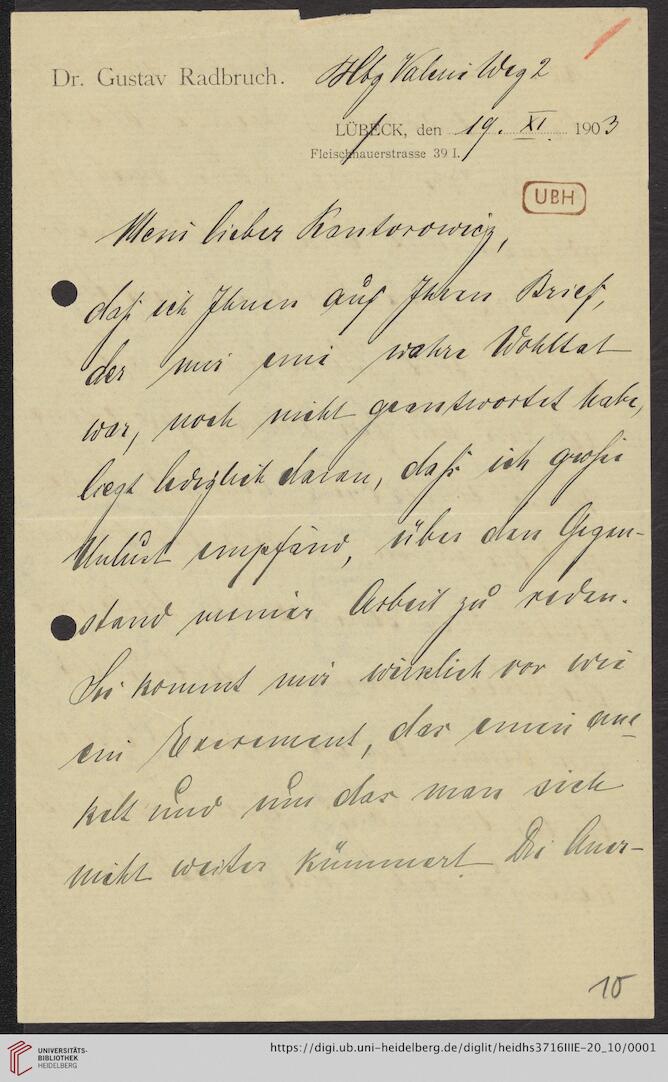 Dr. Gustav Radbruch.
Hbg Valerieweg 2
LÜBECK, den 19. XI. 1903
Fleischhauerstrasse 39 I.
UBH
Mein lieber Kantorowicz,
daß ich Ihnen auf Ihren Brief,
der mir eine wahre Wohltat
war, noch nicht geantwortet habe,
liegt lediglich daran, daß ich große
Unlust empfand, über den Gegen-
stand meiner Arbeit zu reden.
Sie kommt mir wirklich vor wie
ein Excrement, das einen ane-
kelt und um das man sich
nicht weiter kümmert. Die Aner-
10
UNIVERSITÄTS-
BIBLIOTHEK
HEIDELBERG
https://digi.ub.uni-heidelberg.de/diglit/heidhs3716IIIE-20_10/0001